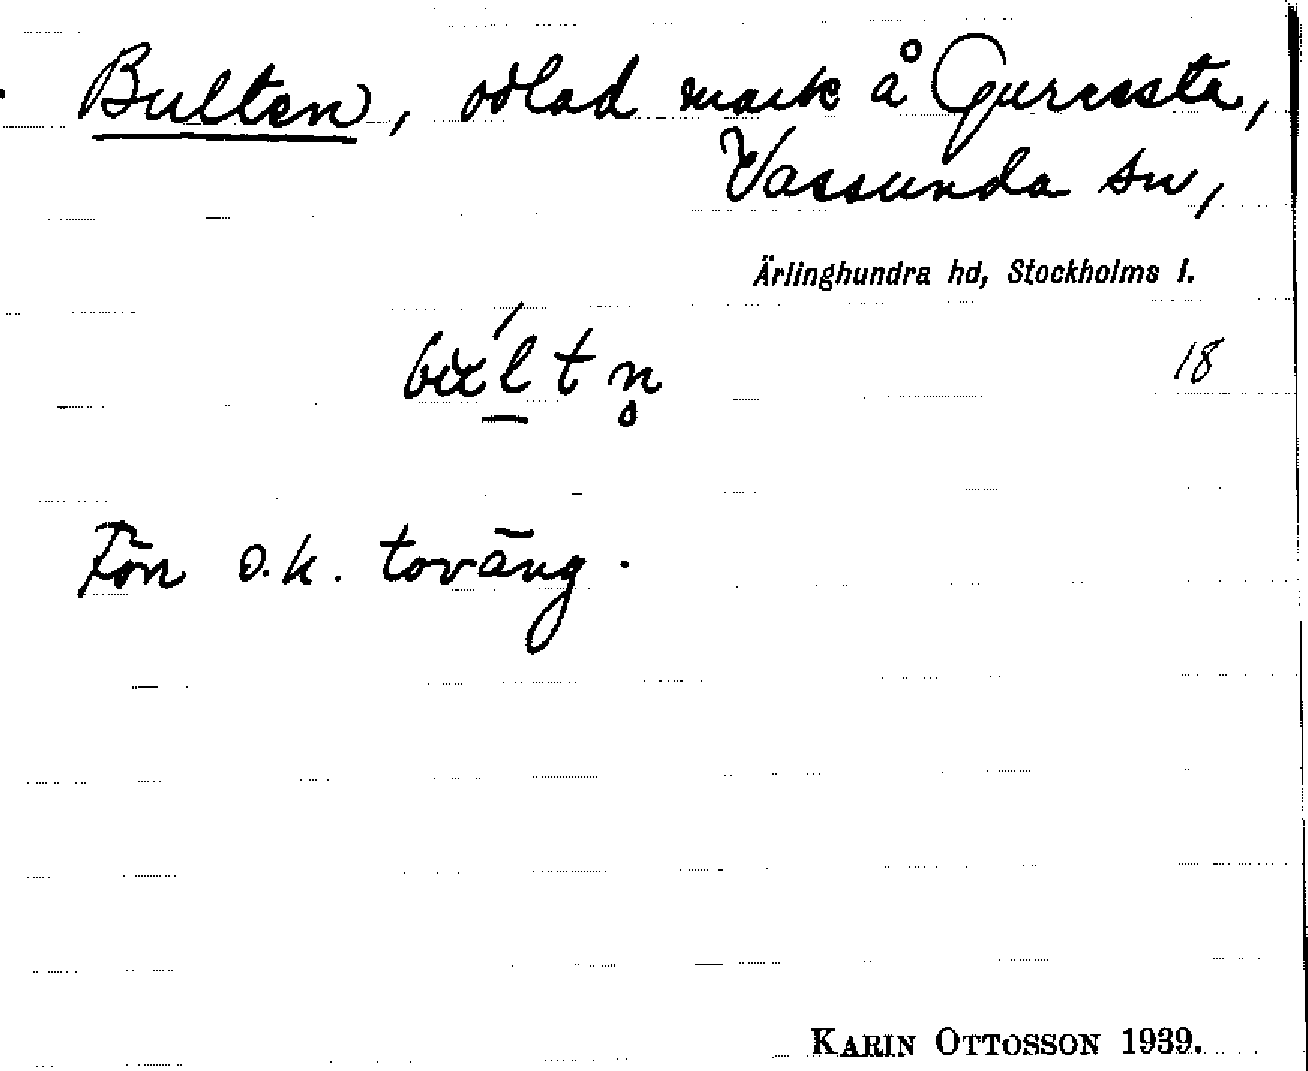 Bulten, odlad mark å Guressta,
Vassunda sn,
Ärlinghundra hd, Stockholms l.
18
Förr o.k. toväng.
KARIN OTTOSSON 1939.